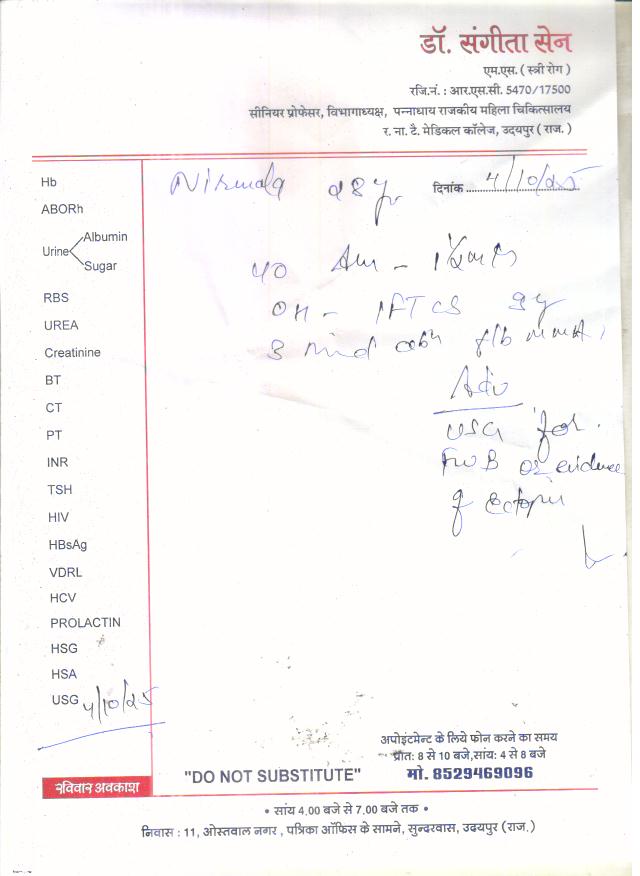 डॉ. संगीता सेन
एम.एस. ( स्त्री रोग )
रजि.नं. : आर.एस.सी. 5470/17500
सीनियर प्रोफेसर, विभागाध्यक्ष, पन्नाधाय राजकीय महिला चिकित्सालय
र. ना. टै. मेडिकल कॉलेज, उदयपुर ( राज. )
Nirmala 28y
दिनांक 4/10/25
Hb
ABORh
Urine Albumin
Sugar
RBS
UREA
Creatinine
BT
CT
PT
INR
TSH
HIV
HBsAg
VDRL
HCV
PROLACTIN
HSG
HSA
USG 4/10/25
OH - 1FTCS 9y
3
Adv
USG for
FWB or evidence
of Ectopic
अपोइंटमेन्ट के लिये फोन करने का समय
प्रात: 8 से 10 बजे,सांय: 4 से 8 बजे
"DO NOT SUBSTITUTE" मो. 8529469096
रविवार अवकाश
• सांय 4.00 बजे से 7.00 बजे तक •
निवास : 11, ओस्तवाल नगर , पत्रिका ऑफिस के सामने, सुन्दरवास, उदयपुर (राज.)